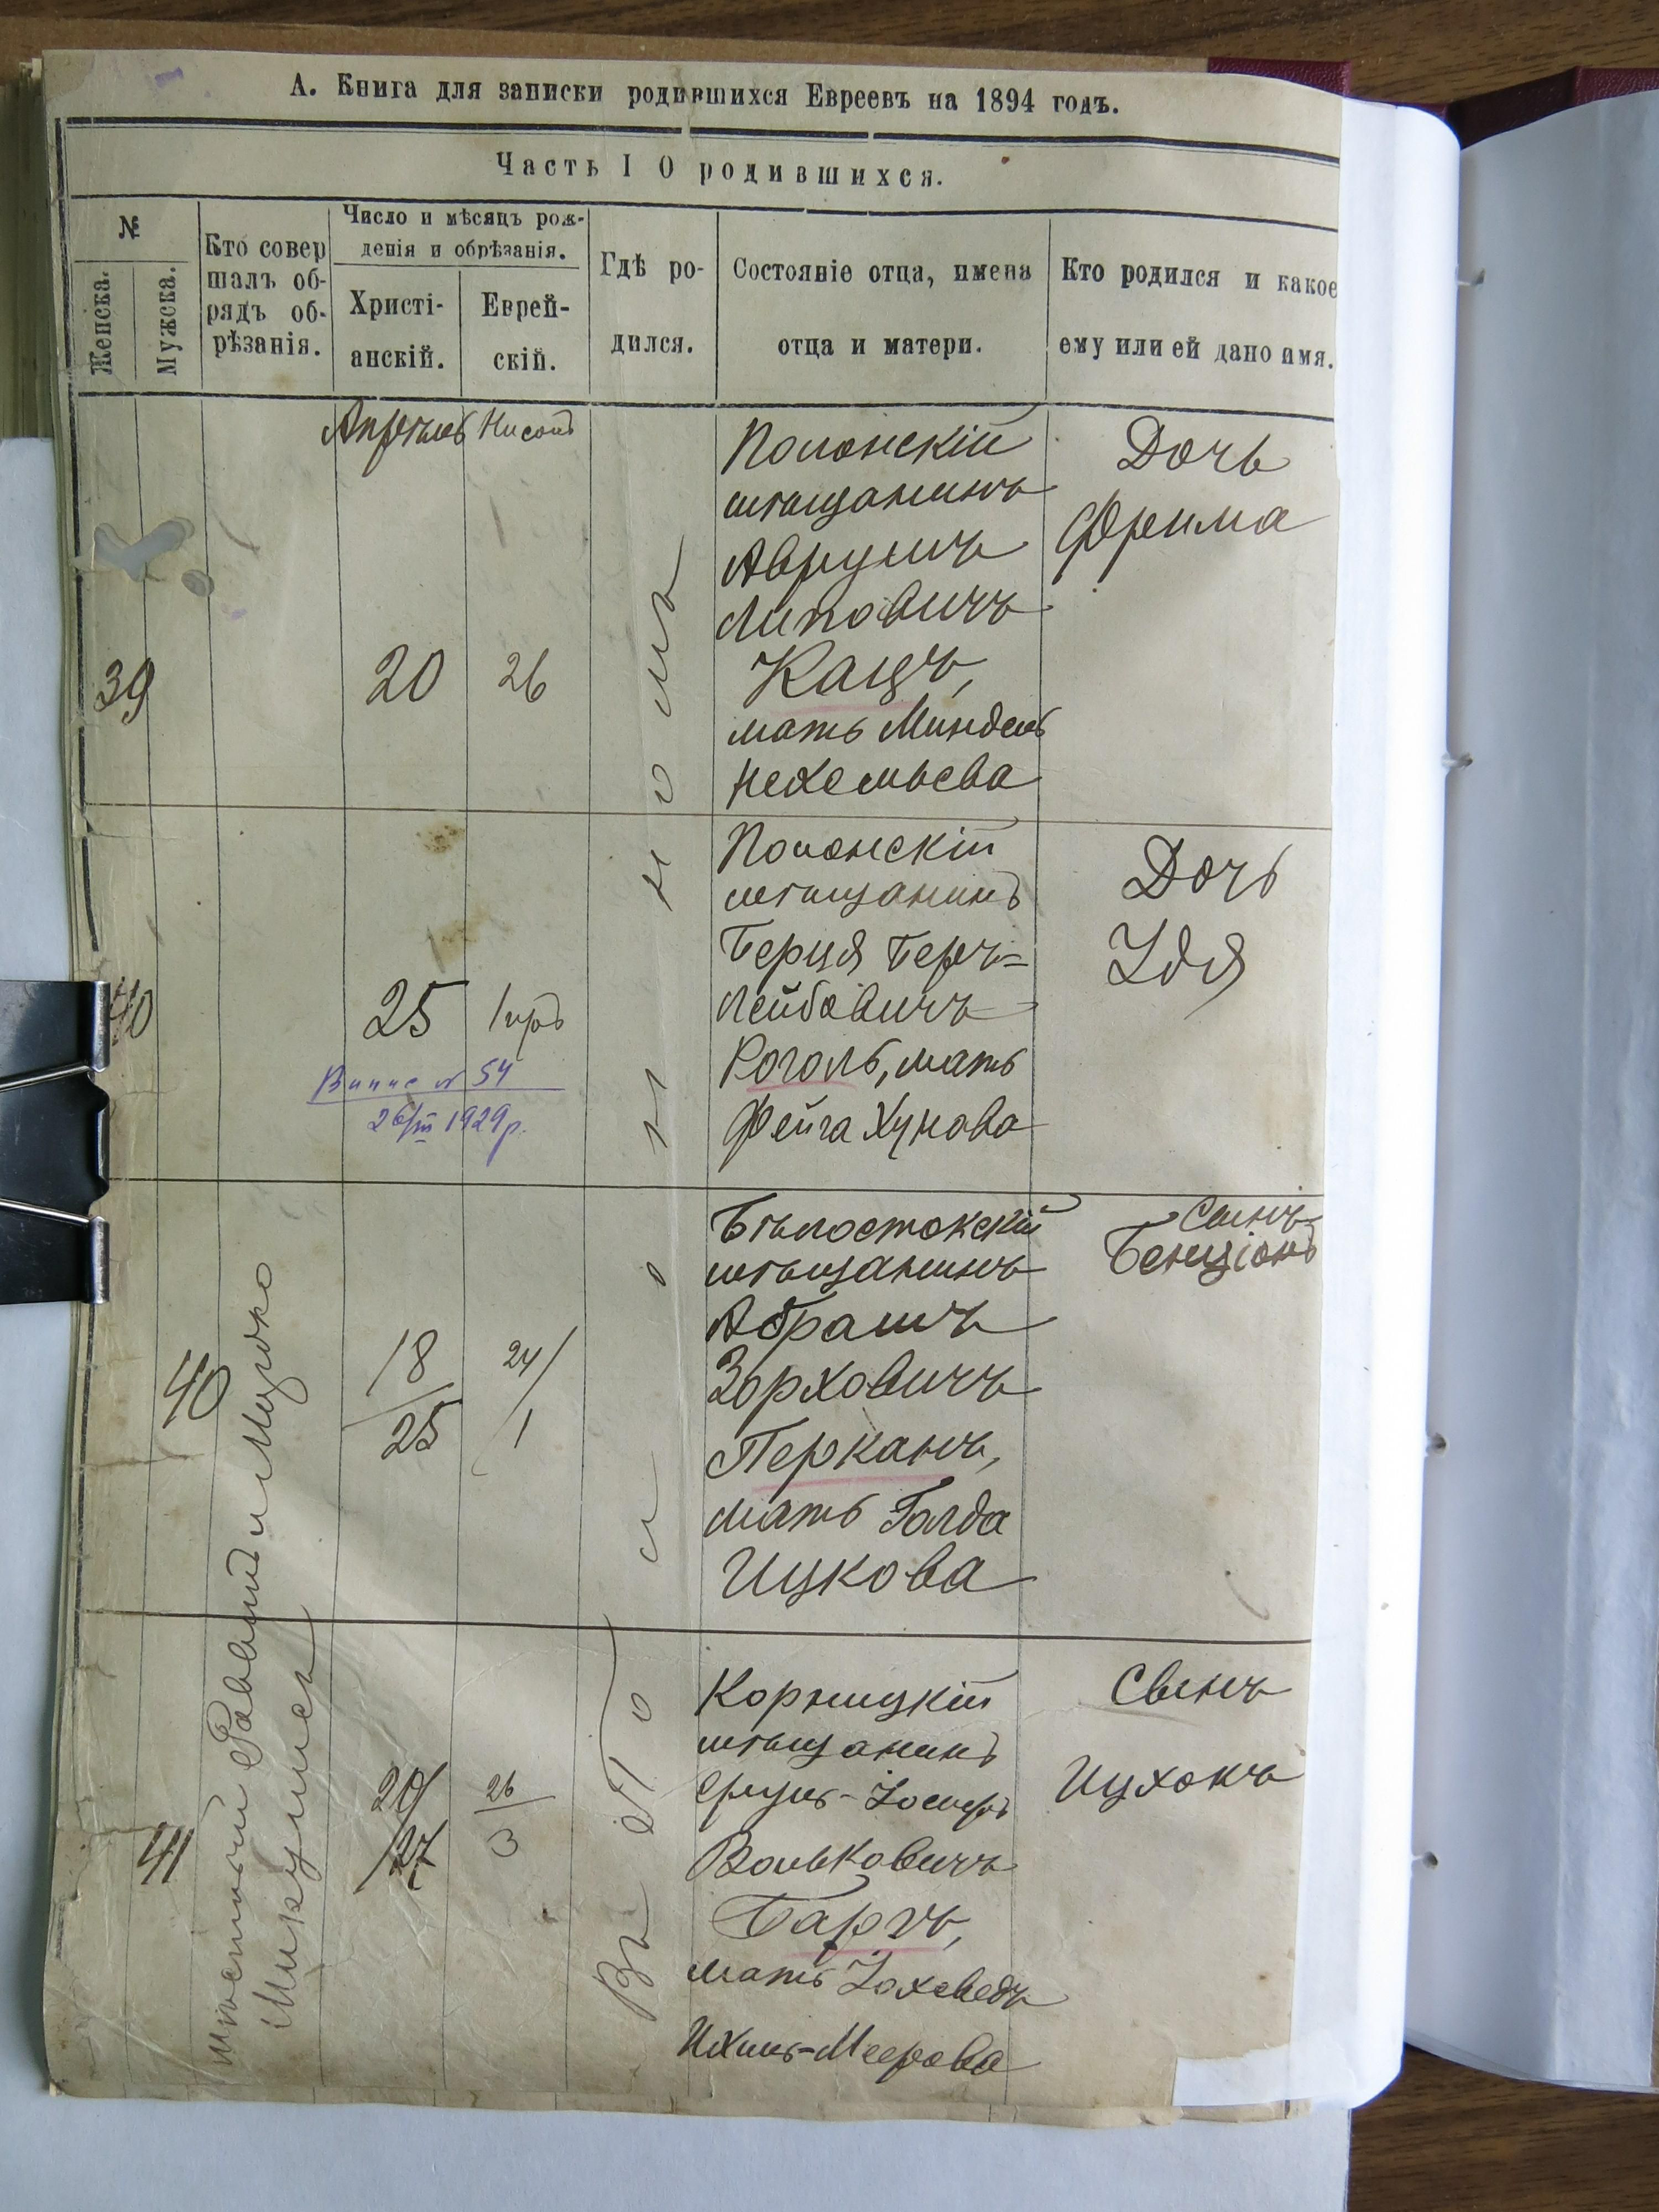 А. Книга для записки родившихся Евреевъ на 1894 годъ.
Часть I О родившихся.
№
Женска.
Мужска.
Кто совер
шалъ об-
рядъ об-
рѣзанія.
Число и мѣсяцъ рож-
денія и обрѣзанія.
Христі-
анскій.
Еврей-
скій.
Гдѣ ро-
дился.
Состояніе отца, имена
отца и матери.
Кто родился и какое
ему или ей дано имя.
Апрѣль Нисонъ
39
20
26
Полонскій
мѣщанинъ
Аврумъ
Липовичъ
Кацъ,
мать Миндель
Нехемьева
Дочь
Фрима
40
25
1 иръ
Випис № 54
26/III 1929 р.
Полонскій
мѣщанинъ
Берця Беръ=
Лейбовичъ
Роголь, мать
Фейга Хунова
Дочь
Удя
40
18
25
24
1
Бѣлостокскій
мѣщанинъ
Абрамъ
Зорховичъ
Перканъ,
мать Голда
Ицкова
Сынъ
Бенціонъ
41
20
27
26
3
Корницкій
мѣщанинъ
Сруль-Іосифъ
Вольковичъ
Баръ,
мать Іохеведъ
Ихиль-Меерова
Сынъ
Ицхокъ
Мѣстный Раввинъ и Мицько
Микулись
Въ Полонномъ